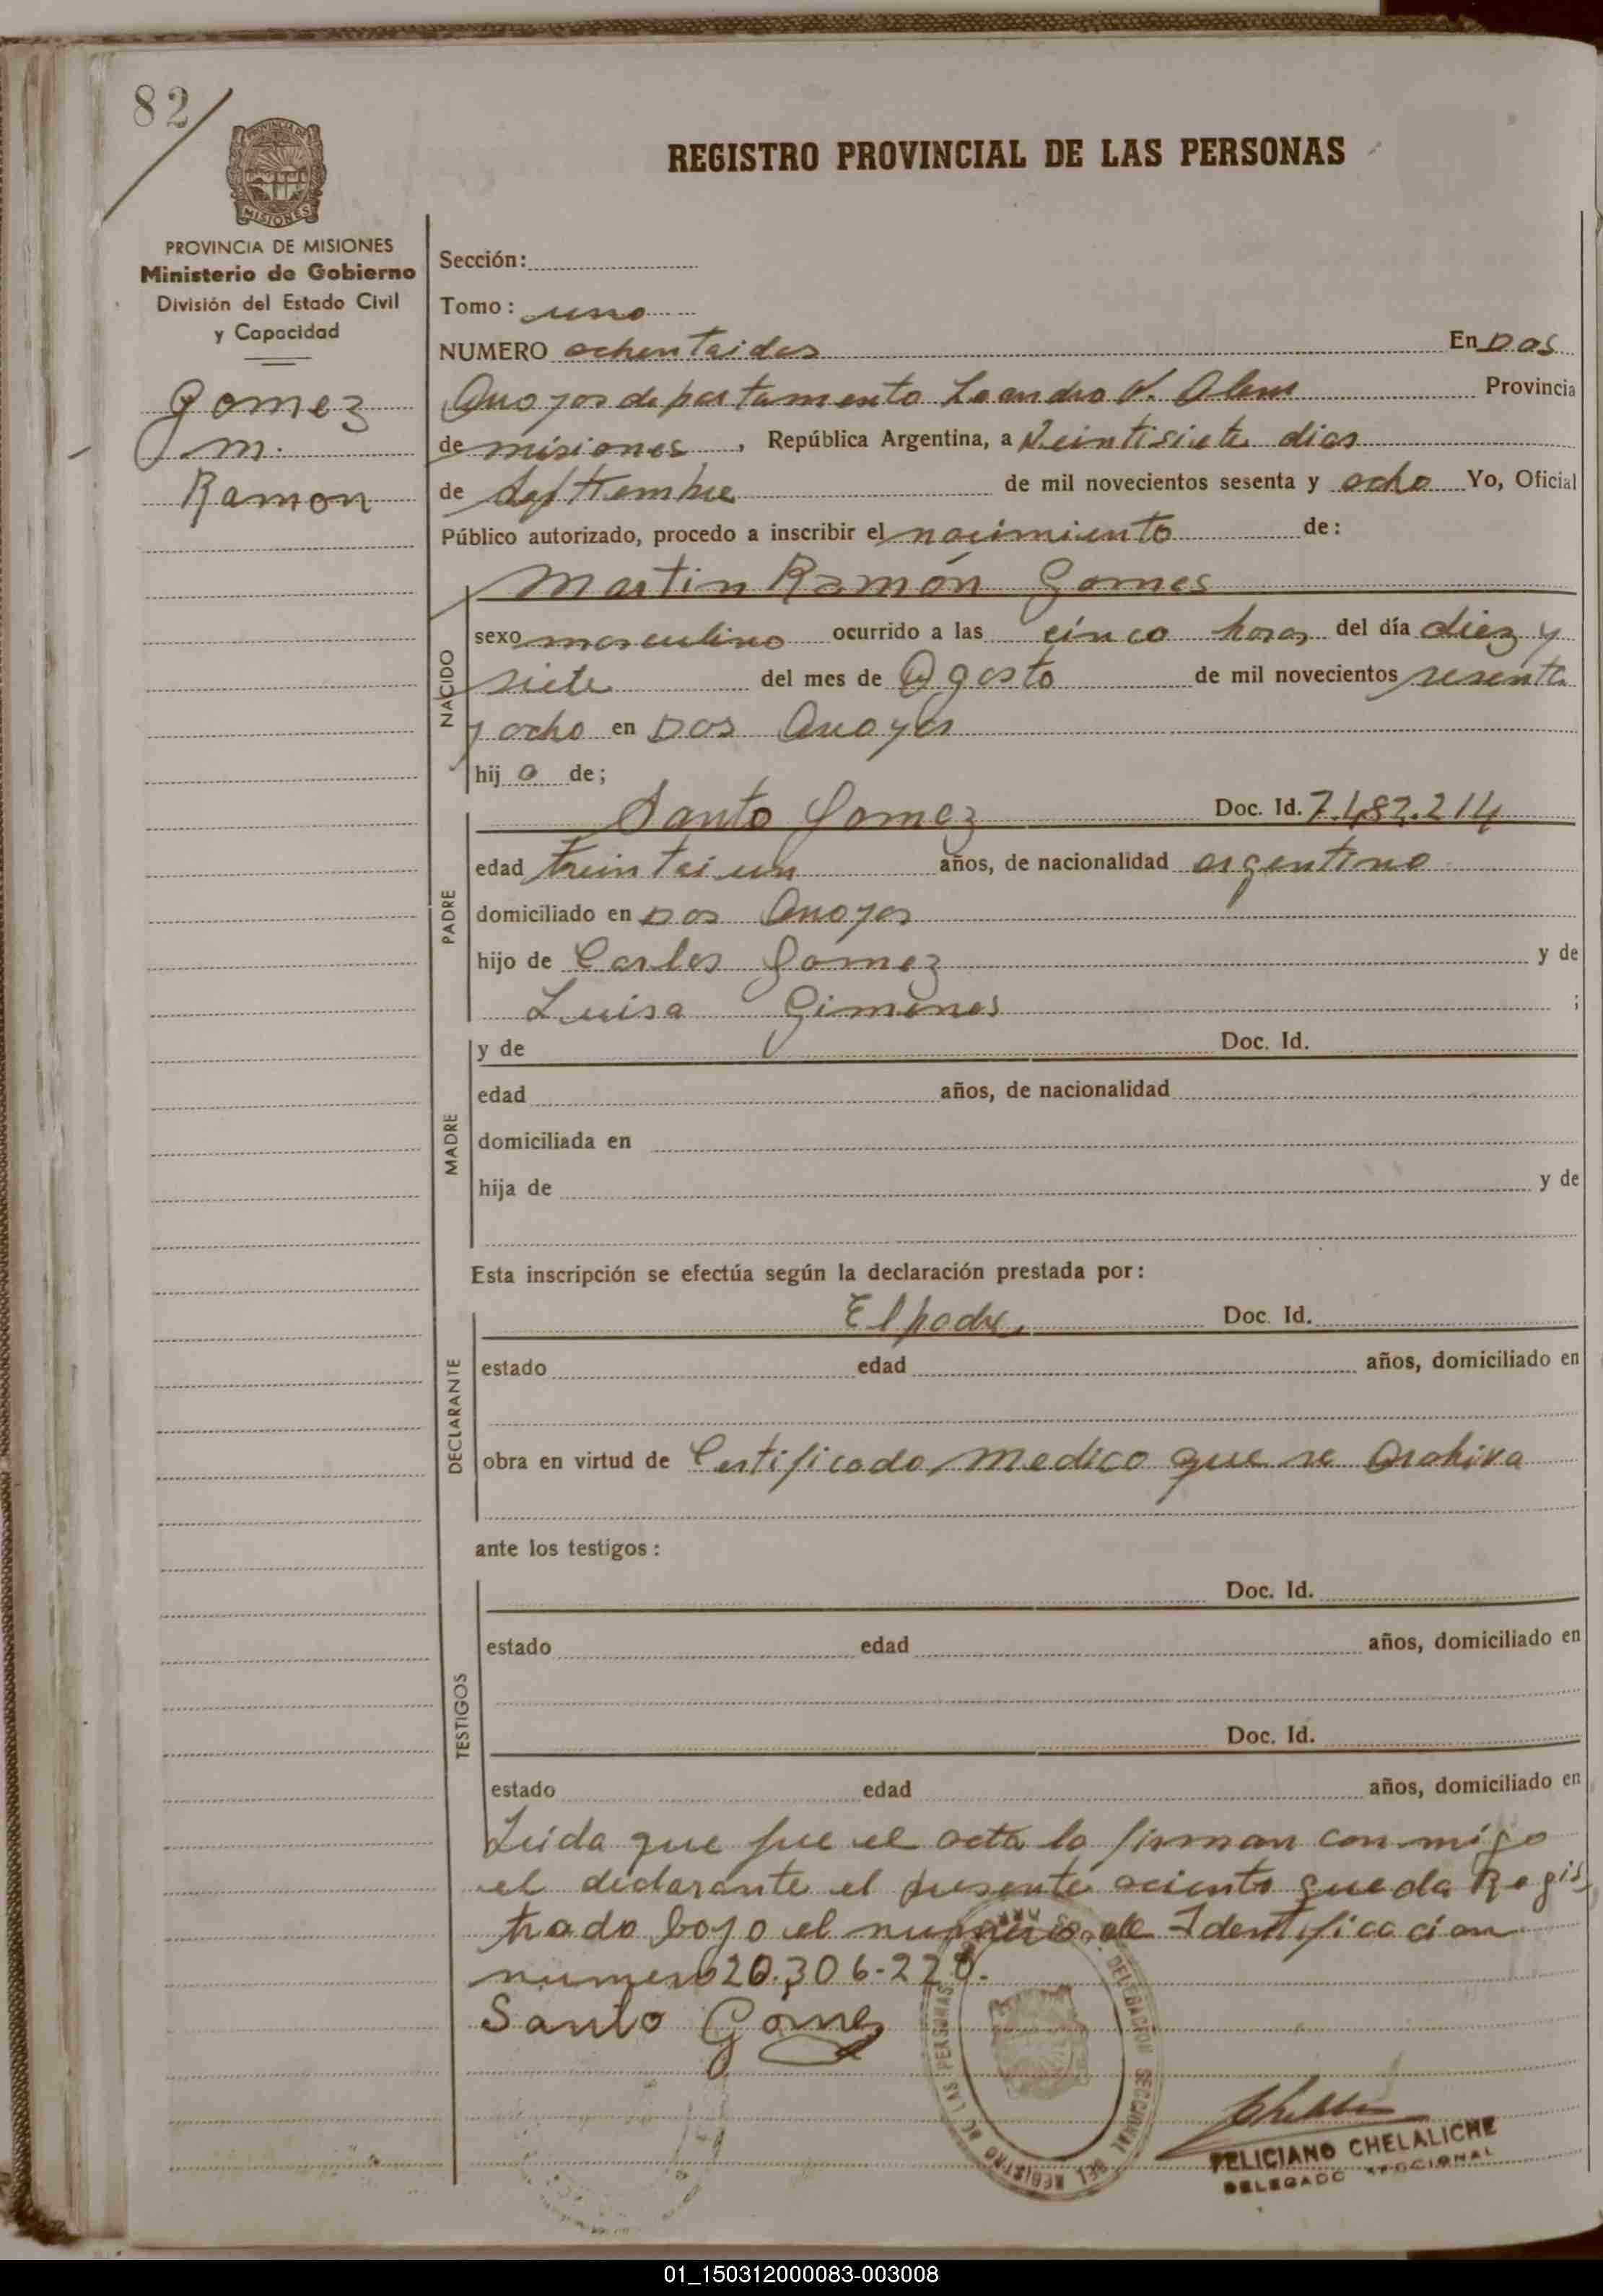 82
PROVINCIA DE
MISIONES
REGISTRO PROVINCIAL DE LAS PERSONAS
PROVINCIA DE MISIONES
Ministerio de Gobierno
División del Estado Civil
y Capacidad
Gomez
M.
Ramon
Sección:
Tomo: uno
NUMERO ochentaidos En Dos
Arroyos departamento Leandro N. Alem Provincia
de misiones, República Argentina, a Veintisiete dias
de Septiembre de mil novecientos sesenta y ocho Yo, Oficial
Público autorizado, procedo a inscribir el nacimiento de:
Martin Ramón Gomes
NACIDO
sexo masculino ocurrido a las cinco horas del día diez y
siete del mes de Agosto de mil novecientos sesenta
y ocho en Dos Arroyos
hij o de;
PADRE
Santo Gomez Doc. Id. 7.482.214
edad treintaiun años, de nacionalidad argentino
domiciliado en Dos Arroyos
hijo de Carlos Gomez y de
Luisa Gimenes ;
MADRE
y de Doc. Id.
edad años, de nacionalidad
domiciliada en
hija de y de
Esta inscripción se efectúa según la declaración prestada por:
DECLARANTE
El padre Doc. Id.
estado edad años, domiciliado en
obra en virtud de Certificado medico que se Archiva
ante los testigos:
TESTIGOS
Doc. Id.
estado edad años, domiciliado en
Doc. Id.
estado edad años, domiciliado en
Leida que fue el acta la firman con migo
el declarante el presente aciento queda Regis
trado bajo el numero de Identificacion
numero 20.306-220.
Santo Gomez
DELEGACION SECCIONAL DEL REGISTRO DE LAS PERSONAS
FELICIANO CHELALICHE
DELEGADO SECCIONAL
01_150312000083-003008